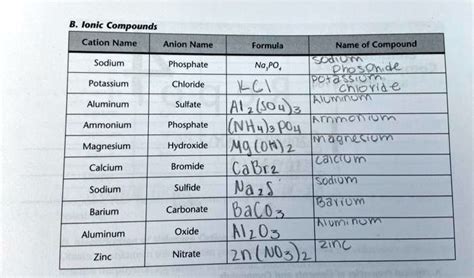 B. Ionic Compounds
Cation Name Anion Name Formula Name of Compound
Sodium Phosphate Na₃PO₄ Sodium Phosphide
Potassium Chloride KCl Potassium Chloride
Aluminum Sulfate Al₂(SO₄)₃ Aluminum
Ammonium Phosphate (NH₄)₃PO₄ Ammonium
Magnesium Hydroxide Mg(OH)₂ magnesium
Calcium Bromide CaBr₂ Calcium
Sodium Sulfide Na₂S Sodium
Barium Carbonate BaCO₃ Barium
Aluminum Oxide Al₂O₃ Aluminum
Zinc Nitrate Zn(NO₃)₂ zinc